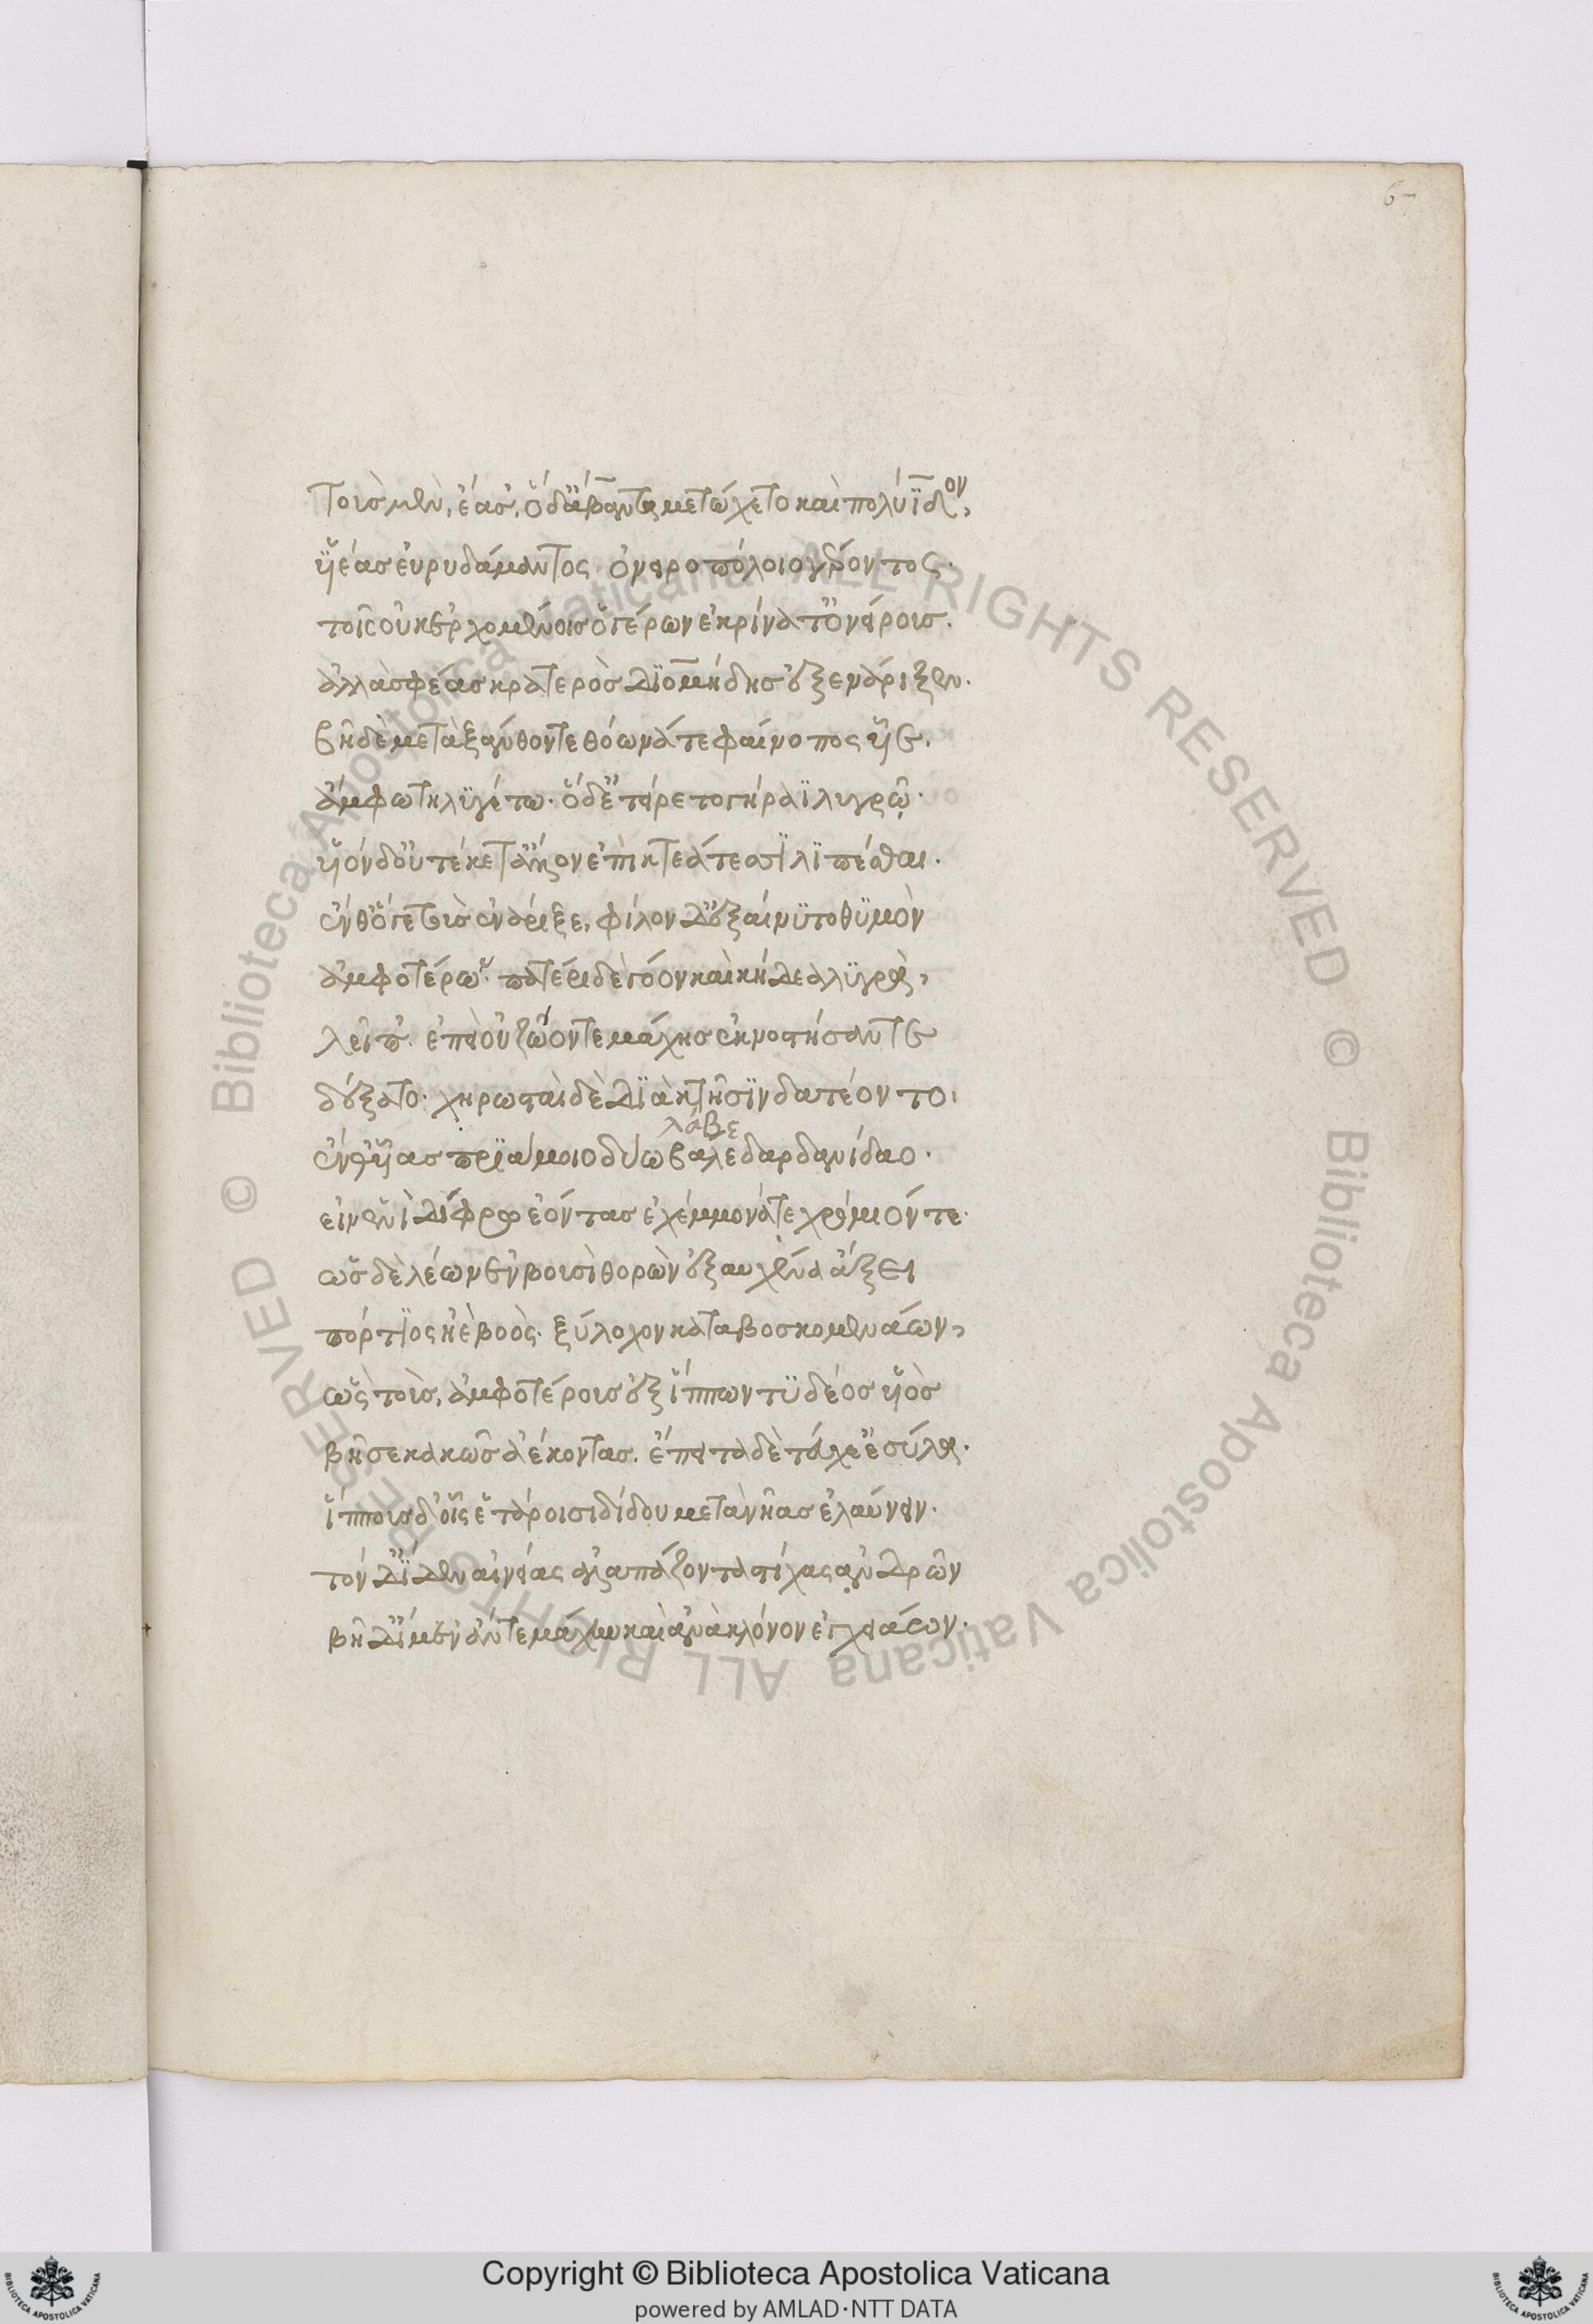 67
τοὺς μὲν, ἔασ', ὁ δ' Ἄβαντα μετῴχετο καὶ πολύϊδον,
ὑέας εὐρυδάμαντος ὀνειροπόλοιο γέροντος.
τοῖς οὐκ ἐρχομένοις ὁ γέρων ἐκρίνατ' ὀνείρους.
ἀλλὰ σφέας κρατερὸς Διομήδης ἐξενάριξεν.
βῆ δὲ μετὰ ξάνθόν τε θόωνά τε φαίνοπος υἷε.
ἄμφω τηλϋγέτω. ὁ δ' ἐτείρετο γήραϊ λυγρῷ.
υἱὸν δ' οὐ τέκετ' ἄλλον ἐπὶ κτεάτεσσι λιπέσθαι.
ἔνθ' ὅγε τοὺς ἐνάριξε, φίλον δ' ἐξαίνυτο θυμὸν
ἀμφοτέρων. πατέρι δὲ γόον καὶ κήδεα λυγρὰ,
λεῖπ'. ἐπεὶ οὐ ζώοντε μάχης ἐκνοστήσαντε
δέξατο. χηρωσταὶ δὲ διὰ κτῆσιν δατέοντο.
λάβε
ἔνθ' υἷας πριάμοιο δύω βάλε δαρδανίδαο.
εἰν ἑνὶ δίφρῳ ἐόντας ἐχέμμονά τε χρομίον τε.
ὡς δὲ λέων ἐν βουσὶ θορὼν ἐξ αὐχένα ἄξει
πόρτιος ἠὲ βοὸς. ξύλοχον κάτα βοσκομενάων,
ὣς τοὺς, ἀμφοτέρους ἐξ ἵππων τυδέος υἱὸς
βῆσε κακῶς ἀέκοντας. ἔπειτα δὲ τεύχε' ἐσύλα.
ἵππους δ' οἷς ἑτάροισι δίδου μετὰ νῆας ἐλαύνειν.
τὸν δ' ἴδεν αἰνείας ἀλαπάζοντα στίχας ἀνδρῶν
βῆ δ' ἴμεν ἄν τε μάχην καὶ ἀνὰ κλόνον ἐγχειάων.
© Biblioteca Apostolica Vaticana ALL RIGHTS RESERVED © Biblioteca Apostolica Vaticana ALL RIGHTS RESERVED
Copyright © Biblioteca Apostolica Vaticana
powered by AMLAD·NTT DATA
BIBLIOTECA APOSTOLICA VATICANA
BIBLIOTECA APOSTOLICA VATICANA